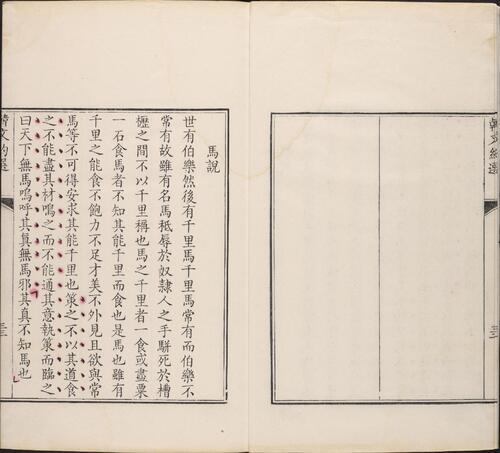 馬說
世有伯樂然後有千里馬千里馬常有而伯樂不
常有故雖有名馬秪辱於奴隸人之手駢死於槽
櫪之間不以千里稱也馬之千里者一食或盡粟
一石食馬者不知其能千里而食也是馬也雖有
千里之能食不飽力不足才美不外見且欲與常
馬等不可得安求其能千里也策之不以其道食
之不能盡其材鳴之而不能通其意執策而臨之
曰天下無馬嗚呼其眞無馬邪其眞不知馬也